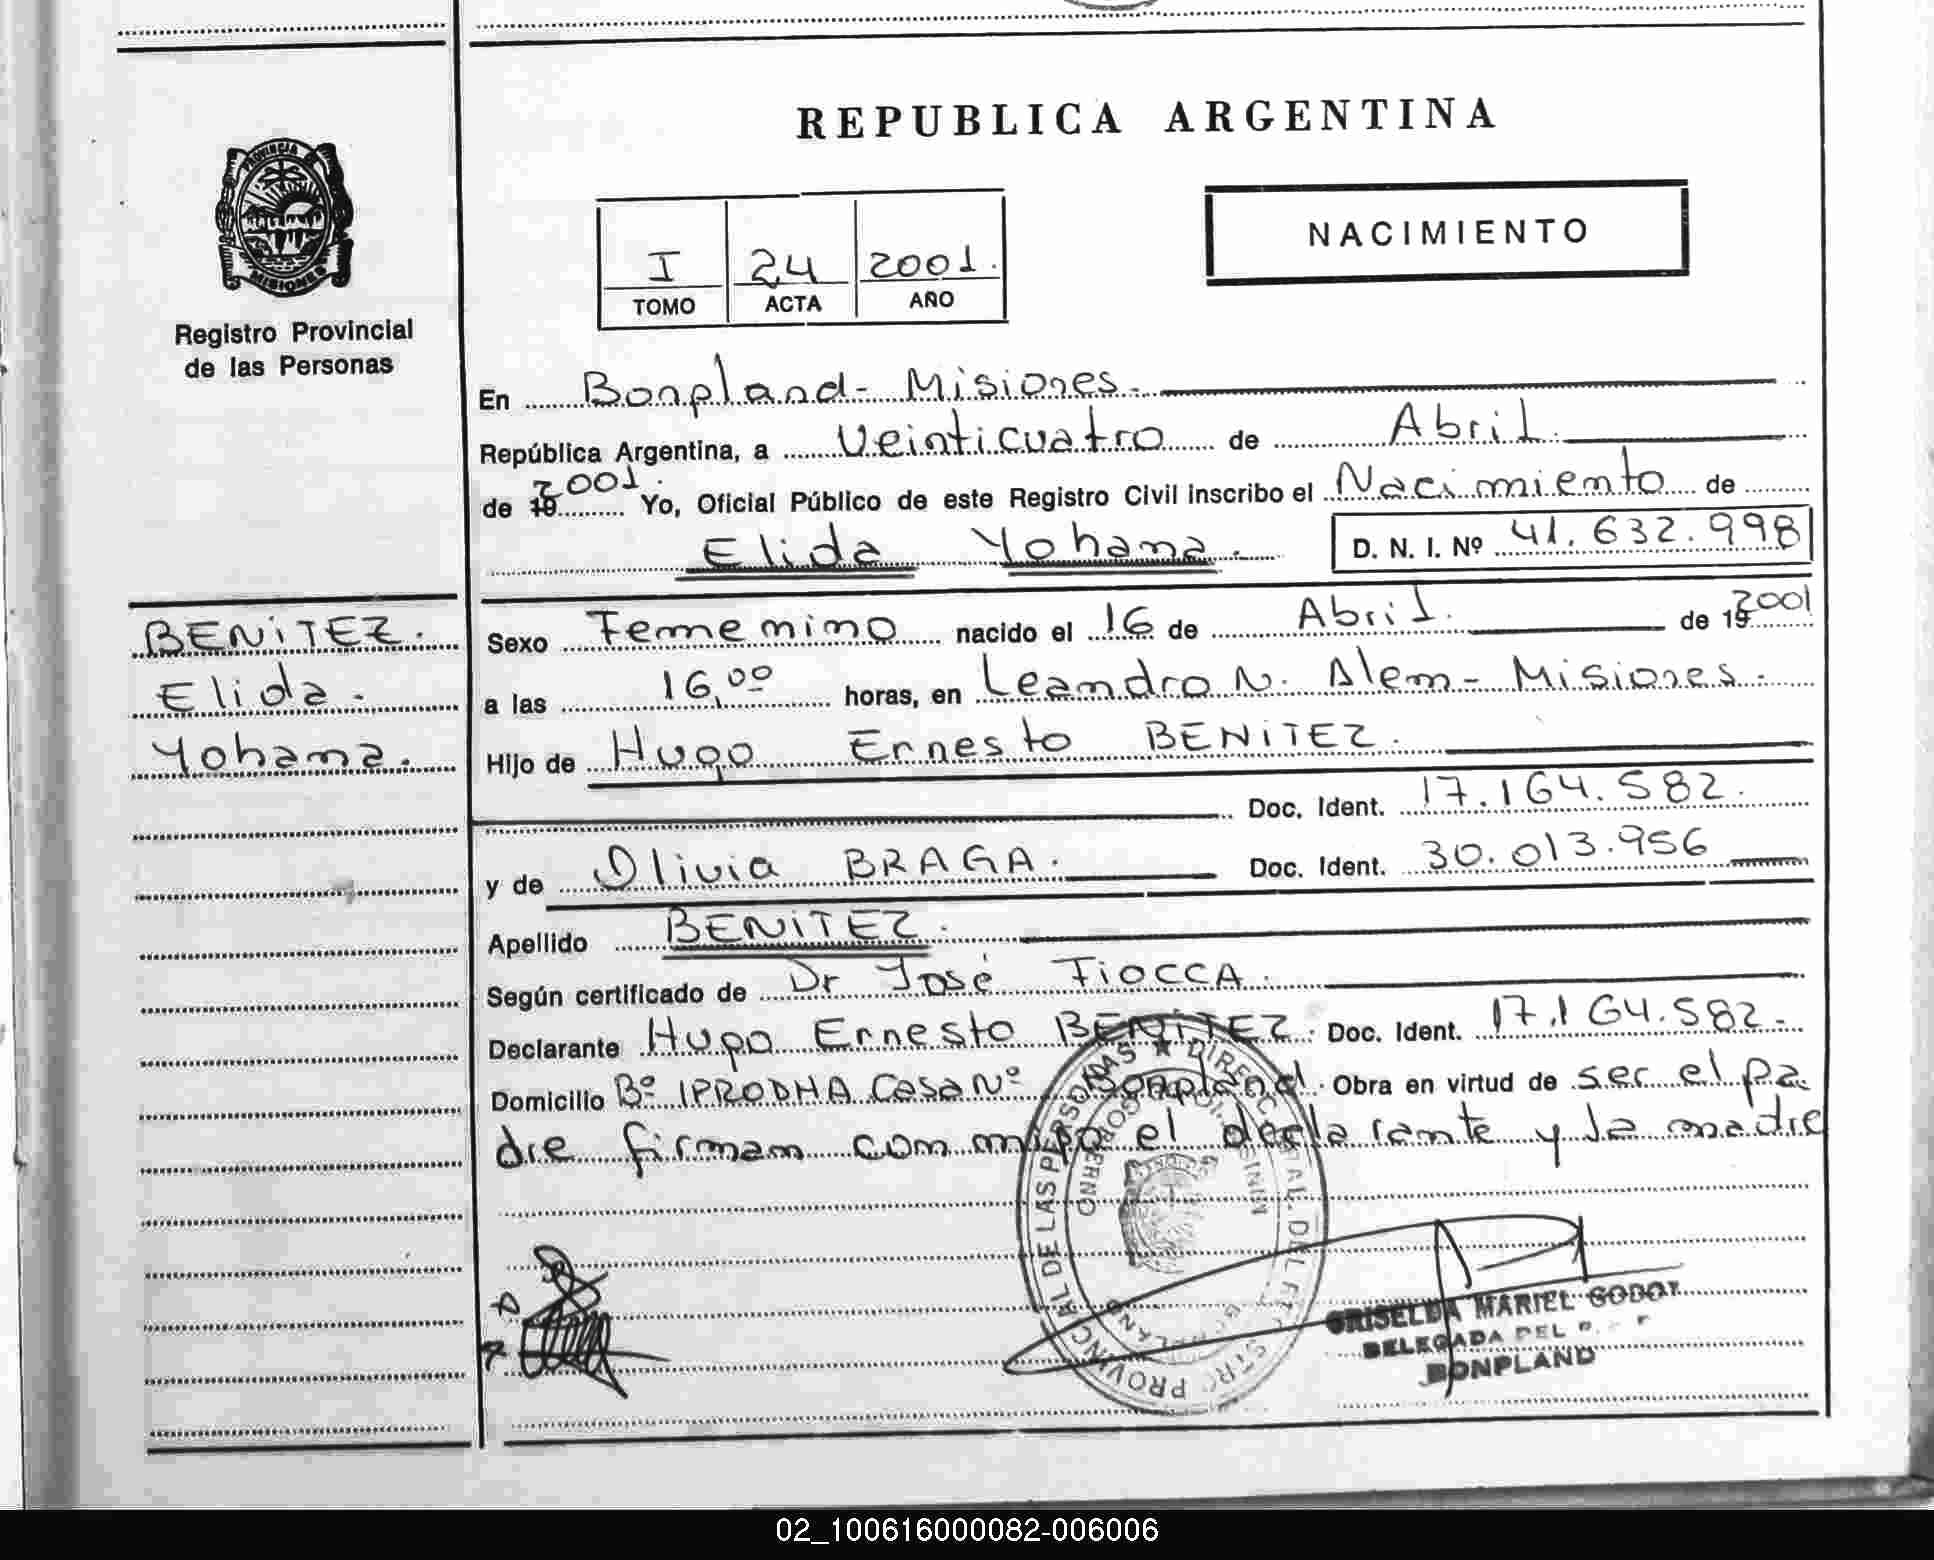 REPUBLICA ARGENTINA
PROVINCIA
MISIONES
Registro Provincial
de las Personas
NACIMIENTO
I 24 2001.
TOMO ACTA AÑO
En Bonpland - Misiones.
República Argentina, a Veinticuatro de Abril.
de 19 2001. Yo, Oficial Público de este Registro Civil inscribo el Nacimiento de
Elida Yohana. D. N. I. Nº 41.632.998
BENITEZ.
Elida.
Yohana.
Sexo Femenino nacido el 16 de Abril. de 19 2001
a las 16,00 horas, en Leandro N. Alem - Misiones.
Hijo de Hugo Ernesto BENITEZ.
Doc. Ident. 17.164.582.
y de Olivia BRAGA. Doc. Ident. 30.013.956
Apellido BENITEZ.
Según certificado de Dr José FIOCCA.
Declarante Hugo Ernesto BENITEZ. Doc. Ident. 17.164.582.
Domicilio Bº IPRODHA Casa Nº Bonpland. Obra en virtud de ser el pa
dre firman conmigo el declarante y la madre
PROVINCIAL DE LAS PERSONAS ★ DIREC
GOBIERNO
GRISELDA MARIEL GODOY
DELEGADA DEL R.
BONPLAND
02_100616000082-006006